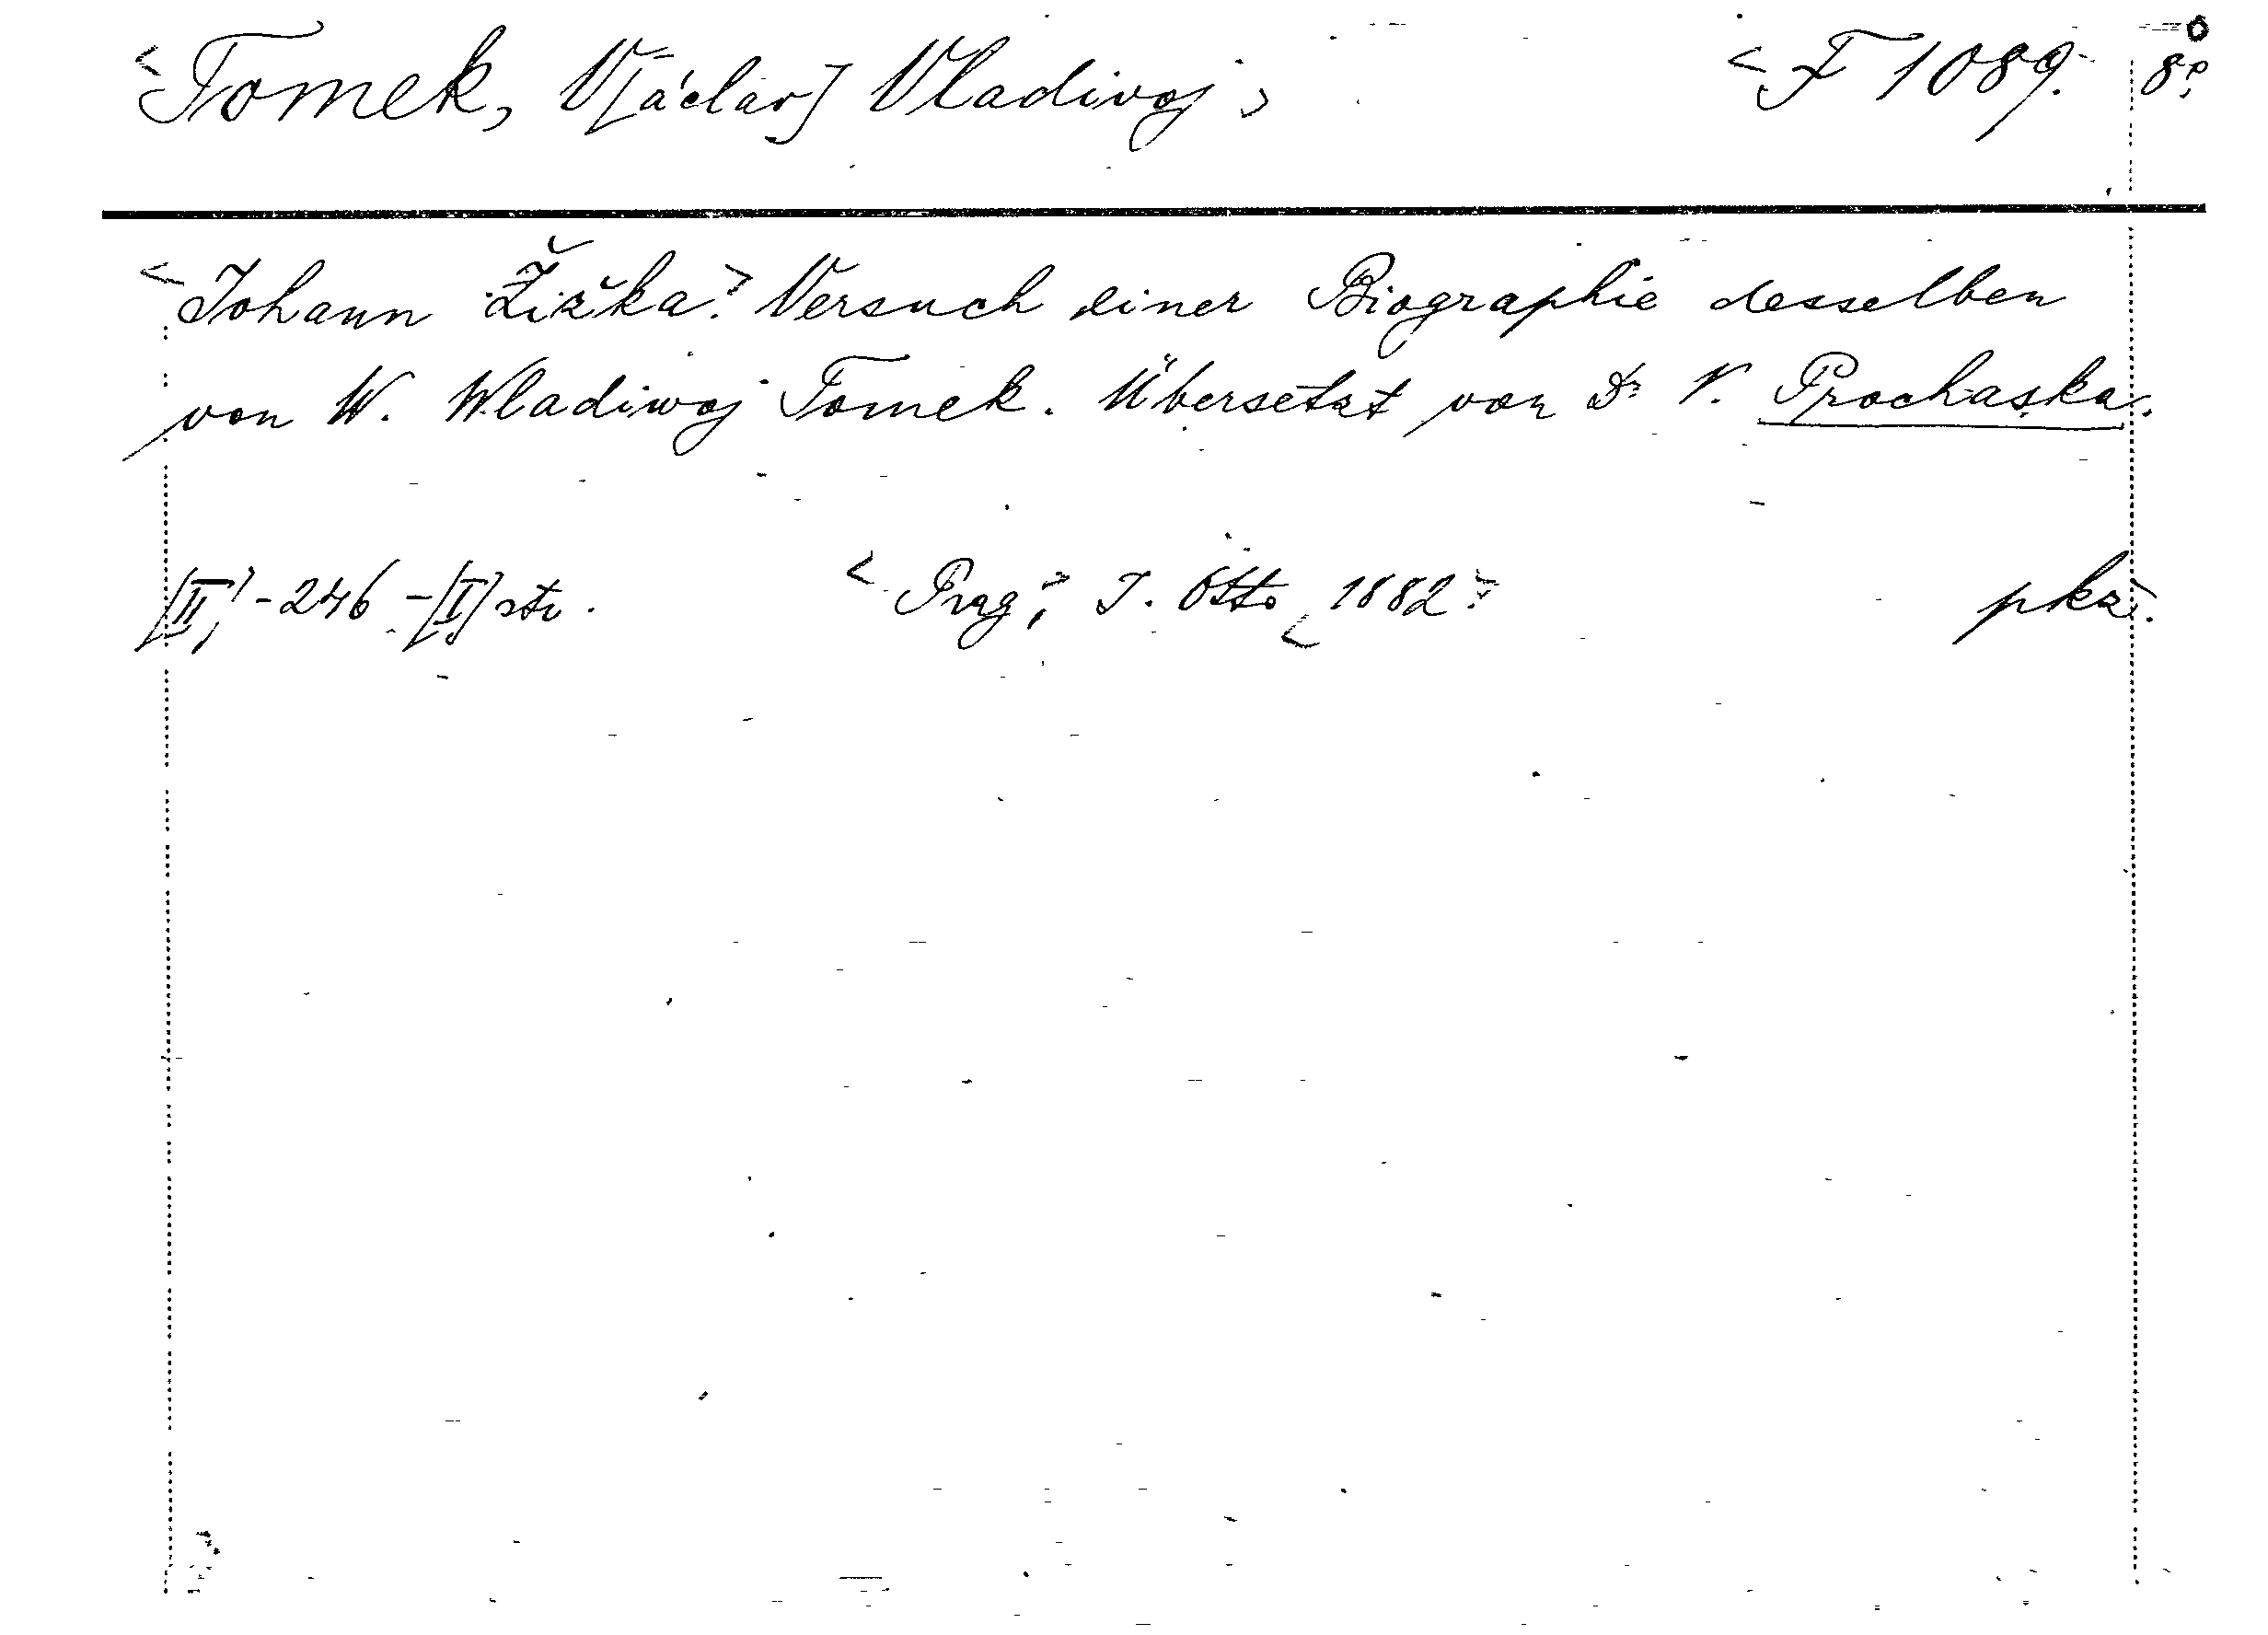 <Tomek, V[áclav] Vladivoj> <F 1089. 8°.
<Johann Žižka.> Versuch einer Biographie desselben
von W. Wladiwoj Tomek. Übersetzt von Dr V. Prochaska.
[II], - 246 - [I] str. <Prag>, J. Otto <1882.> pkz.